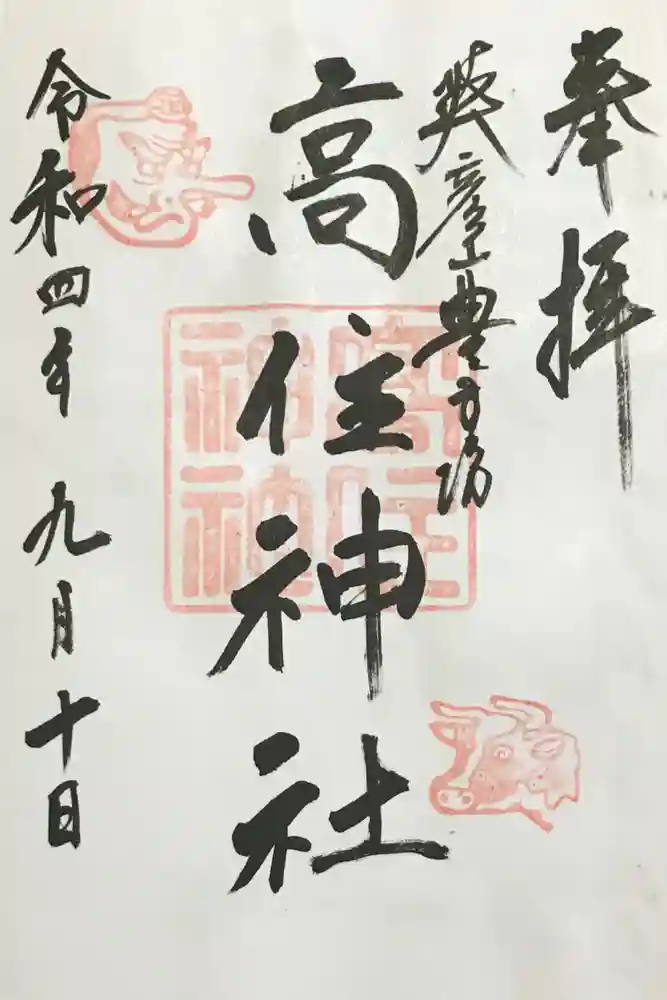 奉拝
英彦山豊前坊
高住神社
令和四年九月十日